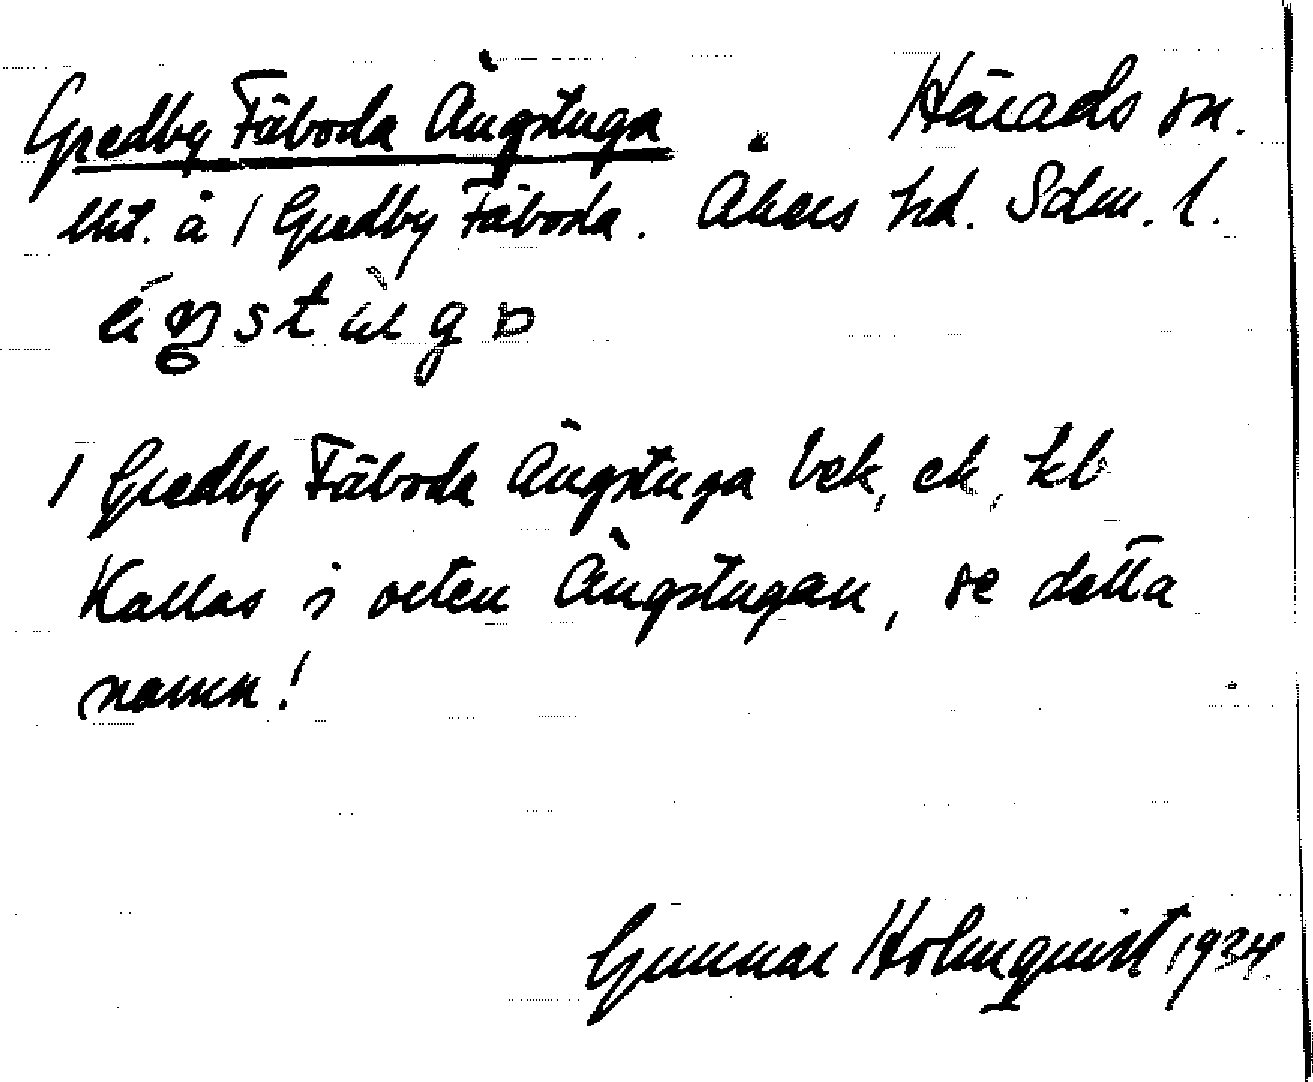 Gredby Fäboda Ängstuga Härads sn.
lht. å 1 Gredby Fäboda. Åkers hd. Sdm. l.
1 Gredby Fäboda Ängstuga bek, ek, kb
Kallas i orten Ängstugan, se detta
namn!
Gunnar Holmquist 1934.